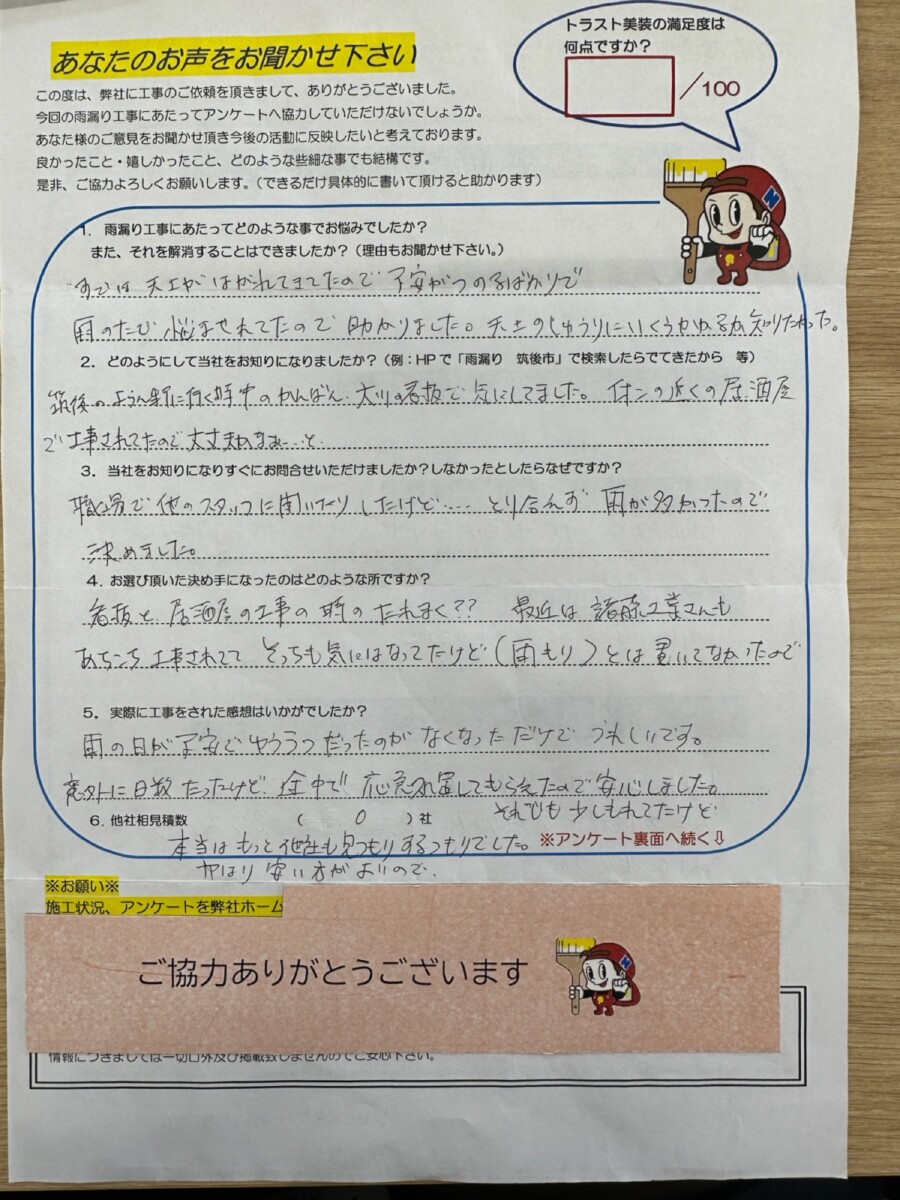 トラスト美装の満足度は
何点ですか?
/100
あなたのお声をお聞かせ下さい
この度は、弊社に工事のご依頼を頂きまして、ありがとうございました。
今回の雨漏り工事にあたってアンケートへ協力していただけないでしょうか。
あなた様のご意見をお聞かせ頂き今後の活動に反映したいと考えております。
良かったこと・嬉しかったこと、どのような些細な事でも結構です。
是非、ご協力よろしくお願いします。(できるだけ具体的に書いて頂けると助かります)
1. 雨漏り工事にあたってどのような事でお悩みでしたか?
また、それを解消することはできましたか?(理由もお聞かせ下さい。)
天井がはがれてきてたので不安がつのるばかりで
雨のたび悩まされてたので助かりました。天井のしゅうりにいくらかかるか知りたかった。
2. どのようにして当社をお知りになりましたか?(例:HPで「雨漏り 筑後市」で検索したらでてきたから 等)
筑後の に行く時 のかんばん、大川の看板で気にしてました。イオンの近くの居酒屋
で工事されてたので大丈夫かなぁ…と
3. 当社をお知りになりすぐにお問合せいただけましたか?しなかったとしたらなぜですか?
職場で他のスタッフに聞いたりしたけど…… とり合えず 雨が多かったので
決めました。
4. お選び頂いた決め手になったのはどのような所ですか?
看板と居酒屋の工事の時のたれまく?? 最近は 諸藤工業さんも
あちこち工事されてて そっちも気にはなってたけど(雨もり)とは書いてなかったので
5. 実際に工事をされた感想はいかがでしたか?
雨の日が不安でゆううつだったのがなくなっただけで うれしいです。
意外に日数たったけど、途中で応急処置してもらえたので安心しました。
それでも少しもれてたけど
6. 他社相見積数 ( 0 )社
本当はもっと他社も見つもりするつもりでした。
やはり安い方がよいので、
※アンケート裏面へ続く⇩
※お願い※
施工状況、アンケートを弊社ホーム
ご協力ありがとうございます
情報につきましては一切口外及び掲載致しませんのでご安心下さい。